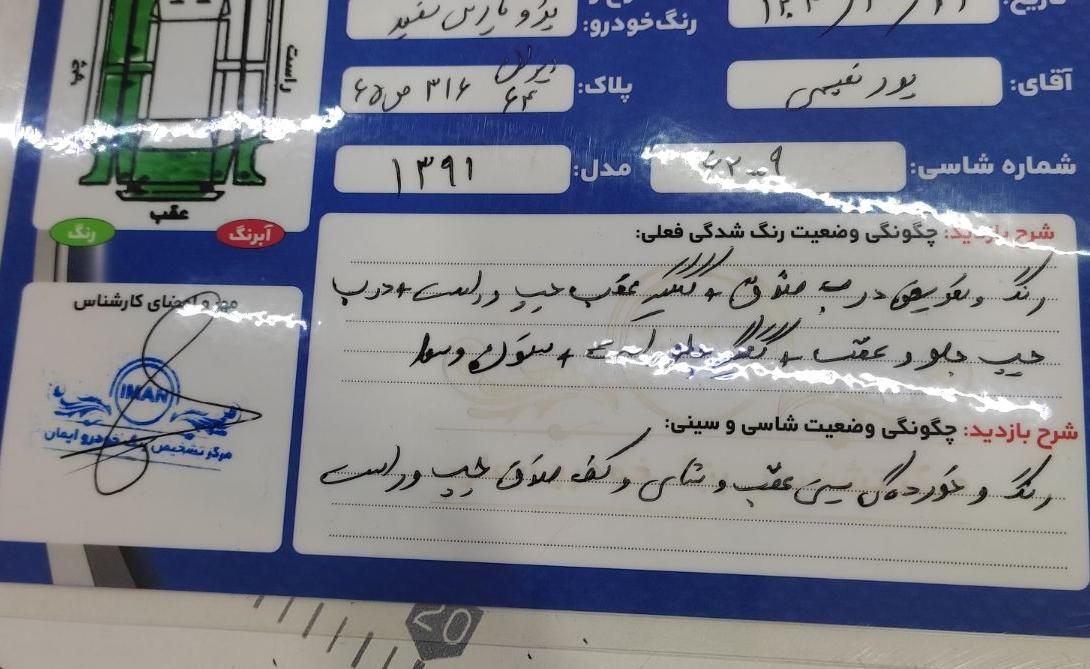 تاریخ:
رنگ‌خودرو: پژو پارس سفید
آقای: پور نعیمی
پلاک: ایران ۶۴ ۳۱۶ ص ۶۵
شماره شاسی:
مدل: ۱۳۹۱
راست
چپ
عقب
آبرنگ
رنگ
شرح بازدید: چگونگی وضعیت رنگ شدگی فعلی:
رنگ و تعویض درب صندوق + گلگیر عقب چپ و راست + درب
چپ جلو و عقب + گلگیر جلو راست + ستون وسط
شرح بازدید: چگونگی وضعیت شاسی و سینی:
رنگ و خوردگی سینی عقب و شاسی و کف صندوق چپ و راست
مهر و امضای کارشناس
IMAN
مرکز تشخیص رنگ خودرو ایمان
20